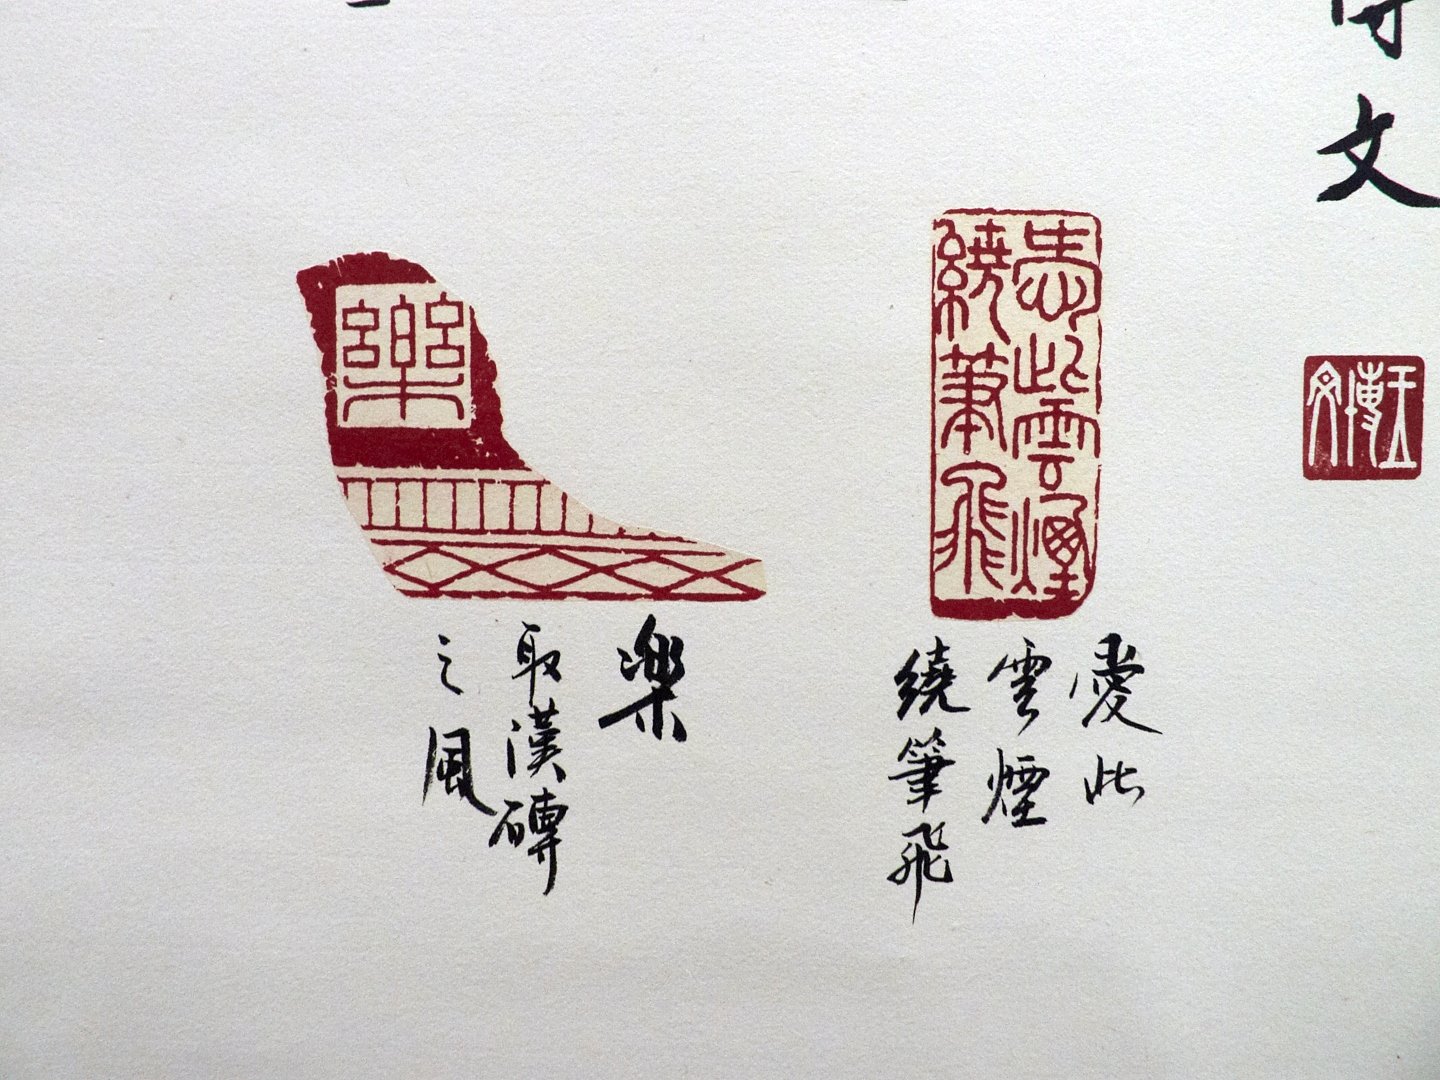 文
王博文
愛此雲煙
繞筆飛
愛此
雲煙
繞筆飛
樂
樂
取漢磚
之風